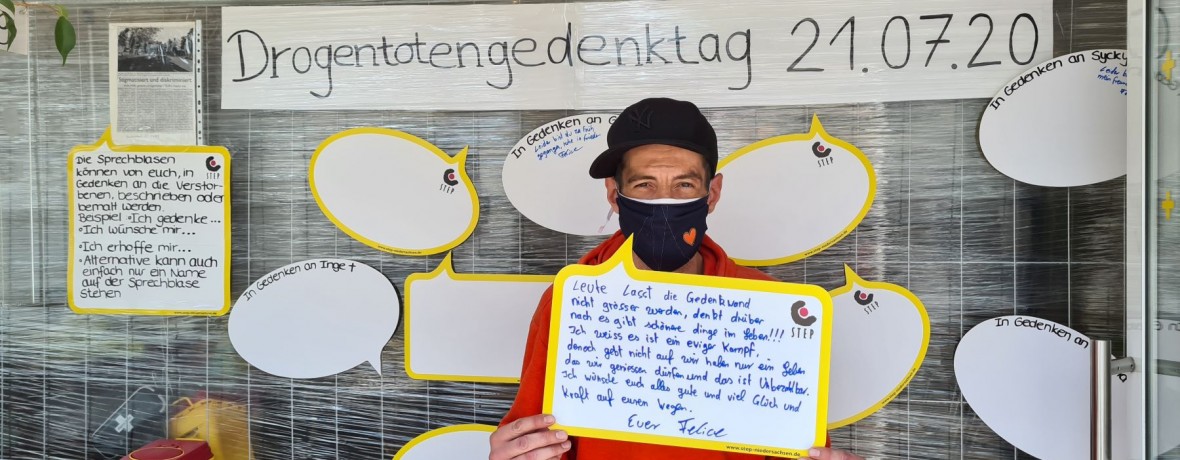 Drogentotengedenktag 21.07.20
Stigmatisiert und diskriminiert
Die Sprechblasen
können von euch, in
Gedenken an die Verstor-
benen, beschrieben oder
bemalt werden.
Beispiel •Ich gedenke...
•Ich wünsche mir...
•Ich erhoffe mir...
• Alternative kann auch
einfach nur ein Name
auf der Sprechblase
Stehen
STEP
STEP
In Gedenken an Inge †
In Gedenken an G
Leider bist du zu früh
gegangen, ruhe in Frieden
Felice
STEP
In Gedenken an Sycky
STEP
In Gedenken an
Leute Lasst die Gedenkwand
nicht grösser werden, denkt drüber
nach es gibt schönere dinge im Leben!!!
Ich weiss es ist ein eviger Kampf,
denoch gebt nicht auf wir haben nur ein Leben
das wir geniessen dürfen und das ist Unbezahlbar.
Ich wünsche euch alles gute und viel Glück und
Kraft auf euren wegen.
Euer Felice
STEP
www.step-niedersachsen.de